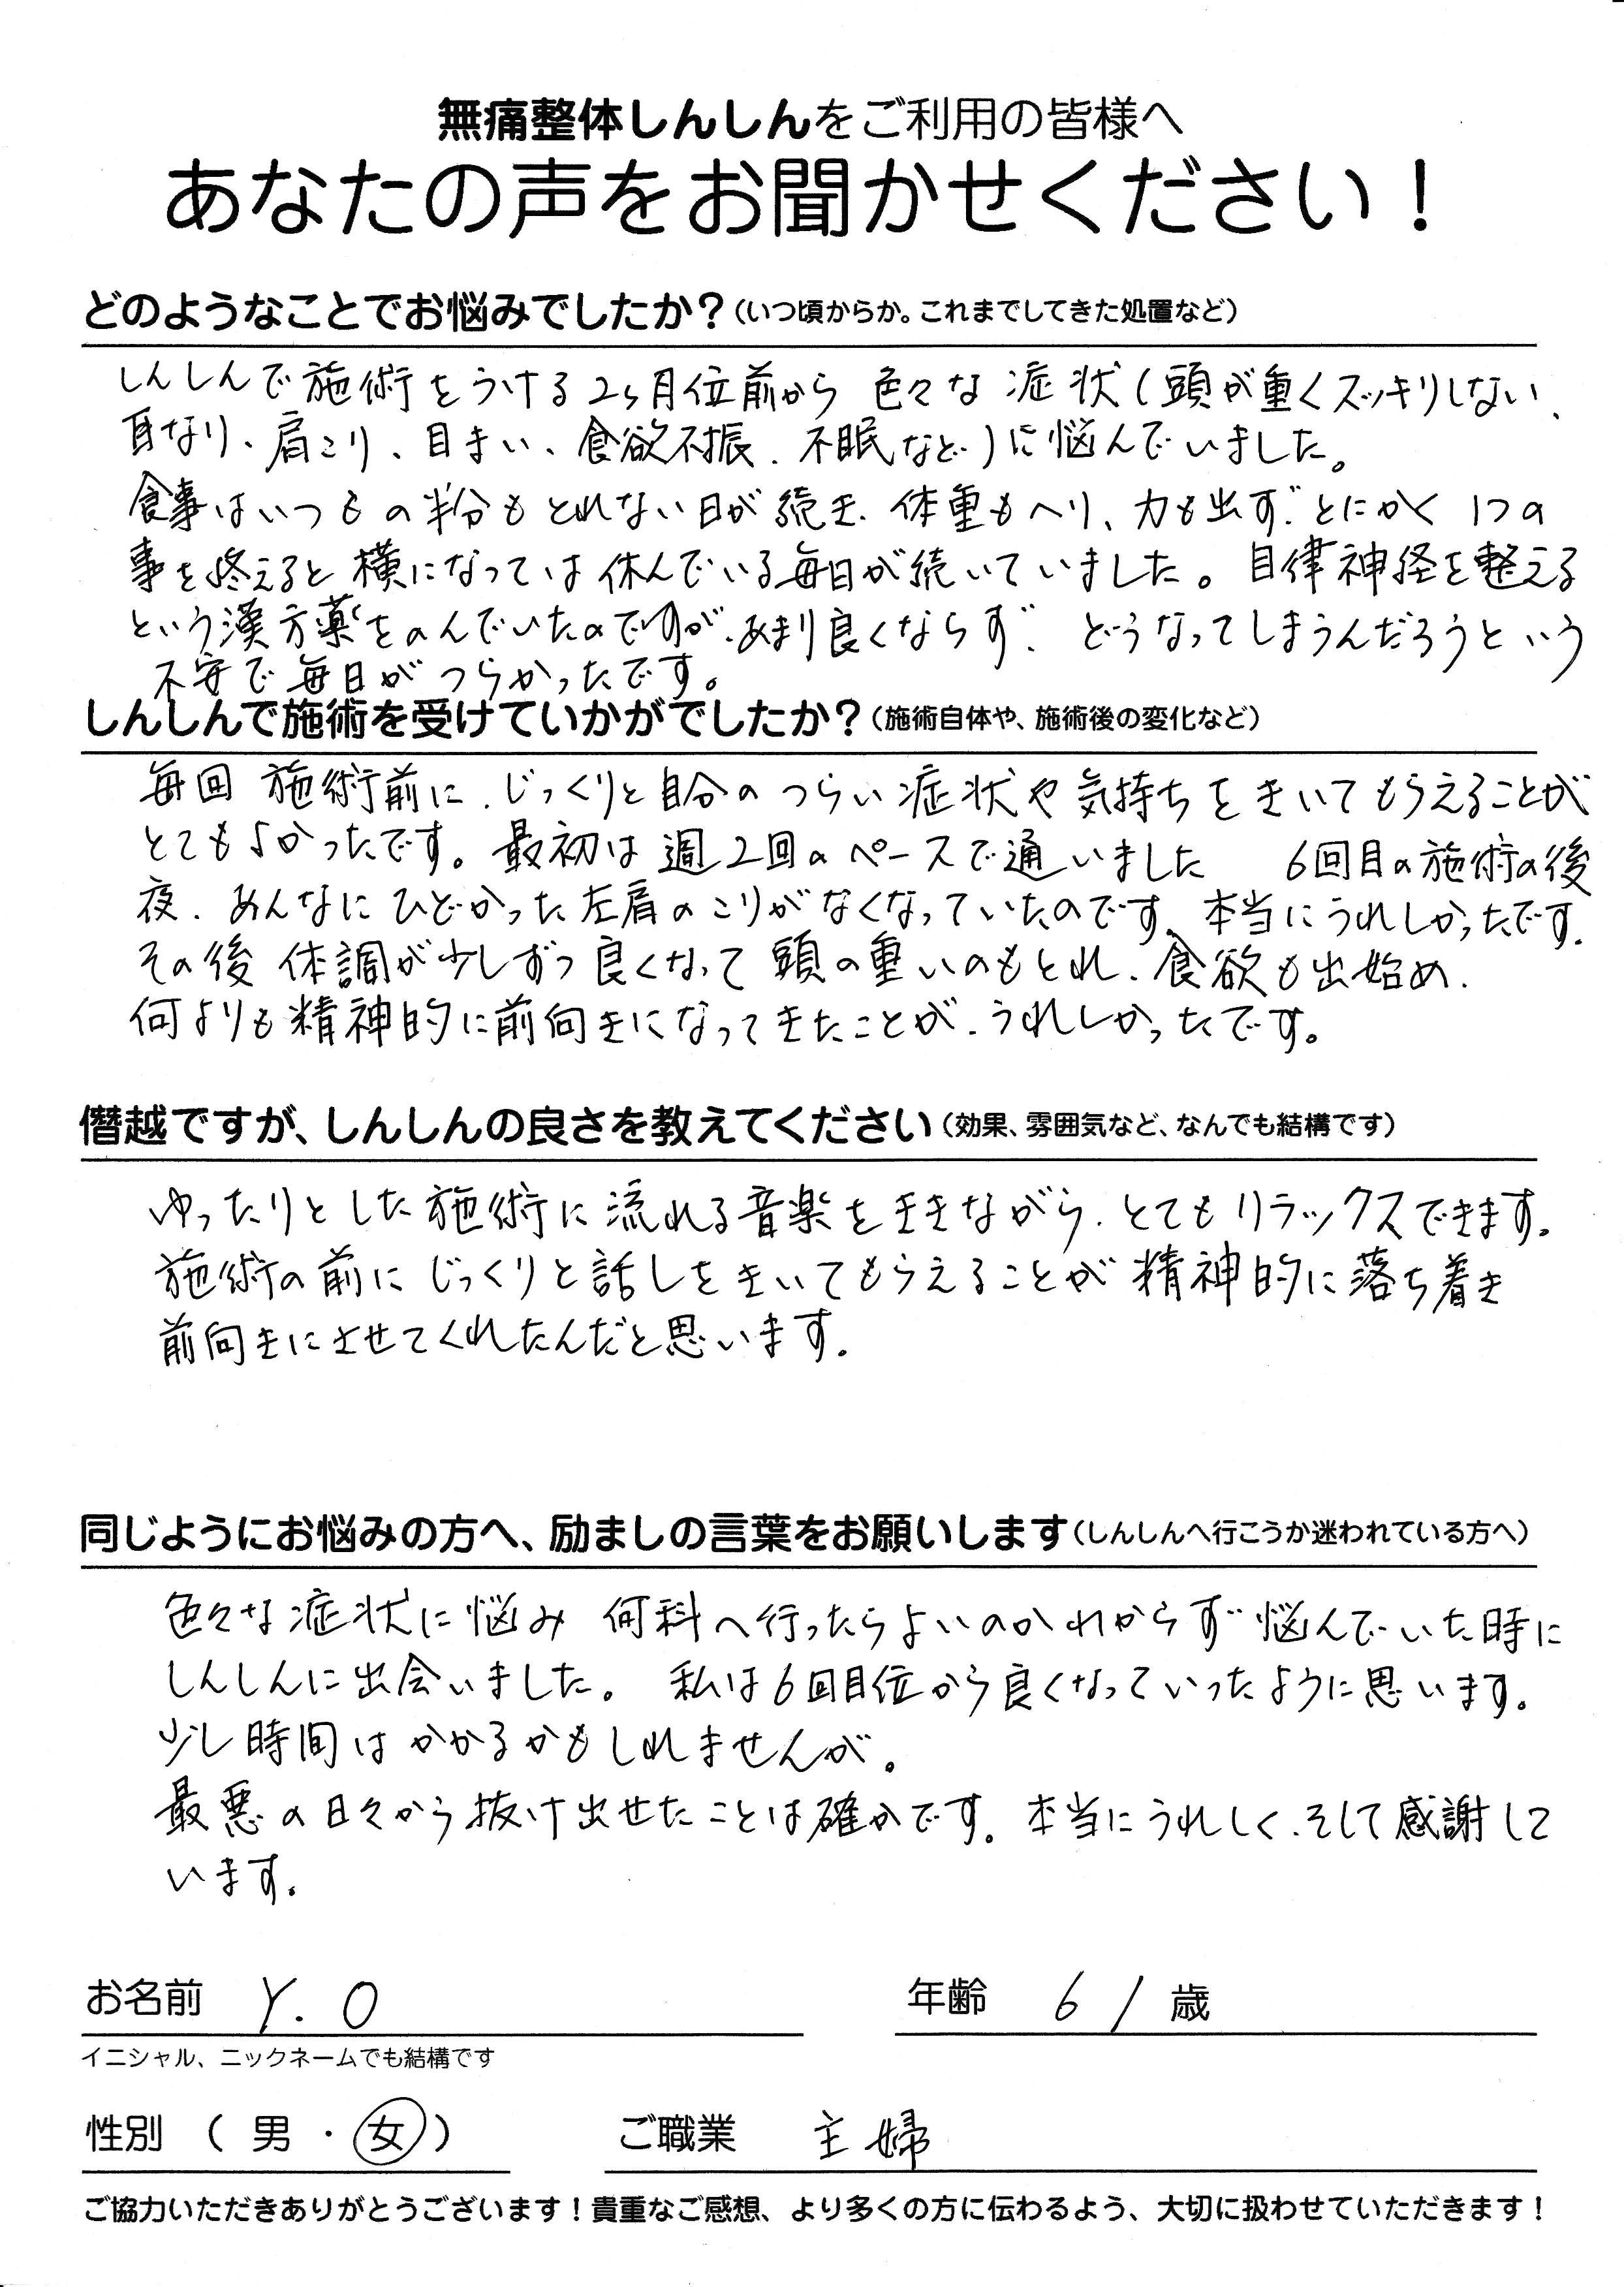 無痛整体しんしんをご利用の皆様へ
あなたの声をお聞かせください！
どのようなことでお悩みでしたか？（いつ頃からか。これまでしてきた処置など）
しんしんで施術をうける2ヶ月位前から 色々な 症状（頭が重くスッキリしない、
耳なり、肩こり、目まい、食欲不振、不眠など）に悩んでいました。
食事はいつもの半分もとれない日が続き、体重もへり、力も出ず、とにかく 1つの
事を終えると横になっては休んでいる毎日が続いていました。自律神経を整える
という漢方薬をのんでいたのですが、あまり良くならず、どうなってしまうんだろうという
不安で毎日がつらかったです。
しんしんで施術を受けていかがでしたか？（施術自体や、施術後の変化など）
毎回 施術前に、じっくりと自分のつらい症状や気持ちをきいてもらえることが
とてもよかったです。最初は週2回のペースで通いました 6回目の施術の後
夜、あんなにひどかった左肩のこりがなくなっていたのです。本当にうれしかったです。
その後 体調が少しずつ良くなって 頭の重いのもとれ、食欲も出始め、
何よりも精神的に前向きになってきたことが、うれしかったです。
僭越ですが、しんしんの良さを教えてください（効果、雰囲気など、なんでも結構です）
ゆったりとした施術に流れる音楽をききながら、とてもリラックスできます。
施術の前にじっくりと話しをきいてもらえることが精神的に落ち着き
前向きにさせてくれたんだと思います。
同じようにお悩みの方へ、励ましの言葉をお願いします（しんしんへ行こうか迷われている方へ）
色々な症状に悩み 何科へ行ったらよいのかわからず 悩んでいた時に
しんしんに出会いました。 私は6回目位から良くなっていったように思います。
少し時間はかかるかもしれませんが。
最悪の日々から抜け出せたことは確かです。本当にうれしく、そして感謝して
います。
お名前 Y.O 年齢 61 歳
イニシャル、ニックネームでも結構です
性別 （ 男 ・ 女 ） ご職業 主婦
ご協力いただきありがとうございます！貴重なご感想、より多くの方に伝わるよう、大切に扱わせていただきます！